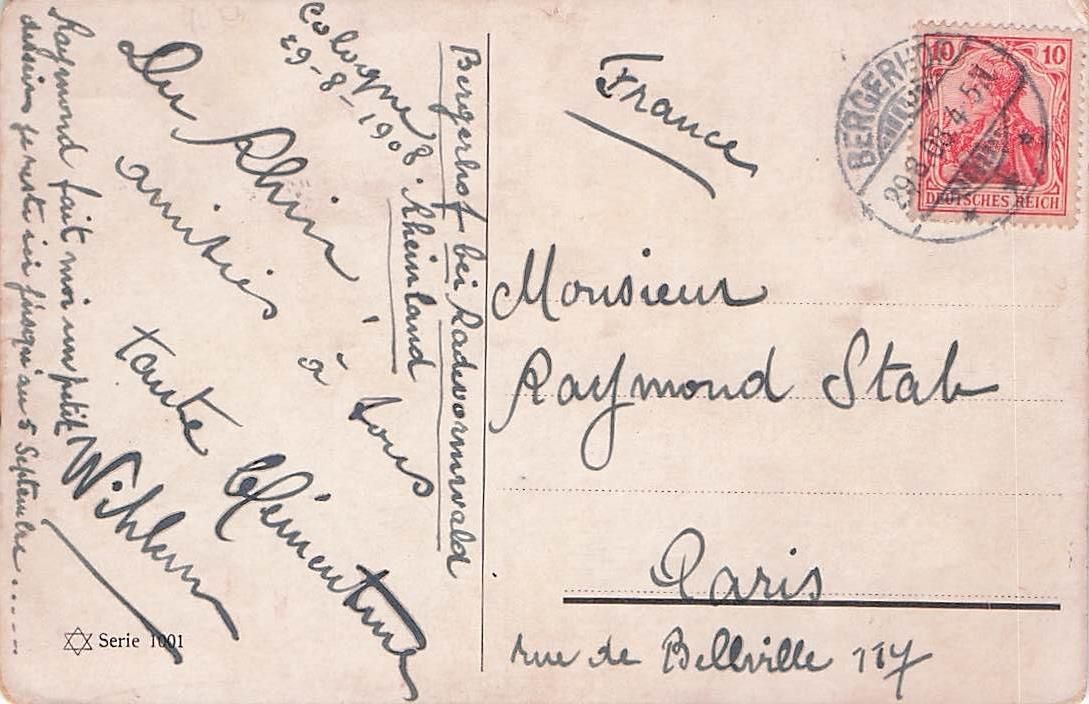 Cologne
29-8-1908.
Rheinland
Bergerhof bei Radevormwald
Du Rhin
amitiés
à tous
tante Clémentine
Raymond fait moi un petit
dessin je reste ici jusqu'au 5 Septembre.....
Serie 1001
France
BERGERHOF
29.8.08.4-5N.
10 10
DEUTSCHES REICH
Monsieur
Raymond Stab
Paris
rue de Bellville 117